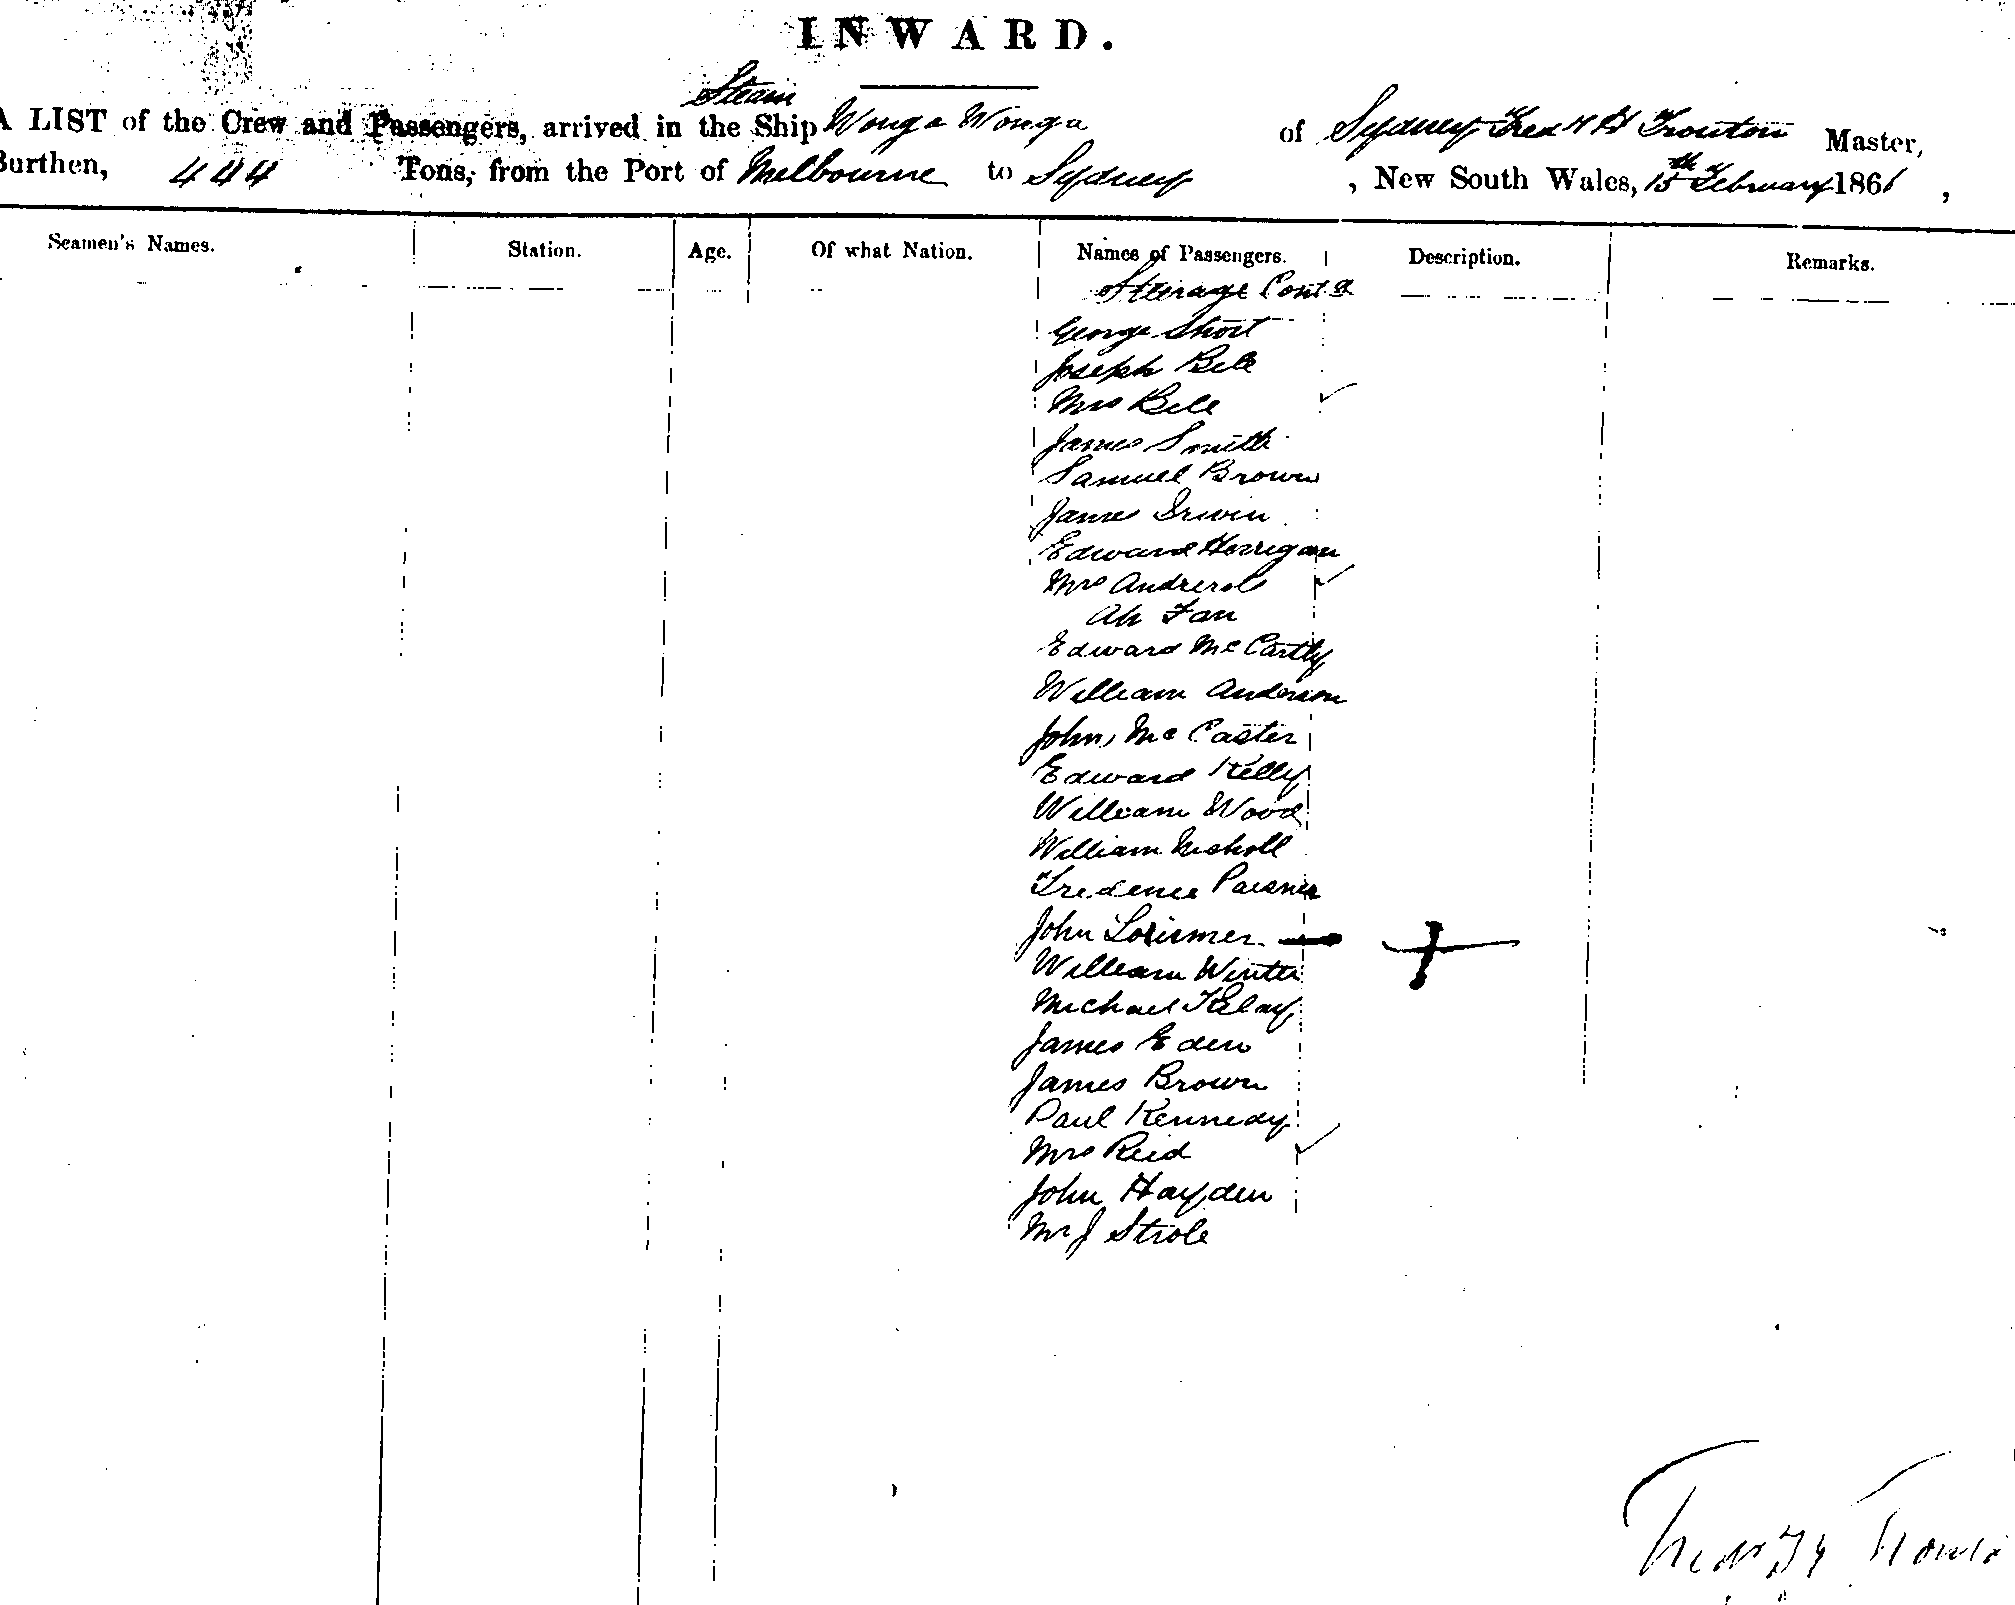 INWARD.
Steam
A LIST of the Crew and Passengers, arrived in the Ship Wonga Wonga of Sydney Fredk H Trouton Master,
Burthen, 444 Tons, from the Port of Melbourne to Sydney, New South Wales, 15th February 1861,
Seamen's Names. Station. Age. Of what Nation. Names of Passengers. Description. Remarks.
Steerage Contd
George Short
Joseph Bell
Mrs Bell
James Smith
Samuel Brown
James Irwin
Edward Horrigan
Mrs
Ah Fan
Edward McCartly
William Anderson
John McCaster
Edward Kelly
William Wood
William Nicholl
John Lorismer
William
Michael
James Eden
James Brown
Paul Kennedy
Mrs Reid
John Hayden
Mr J Strole